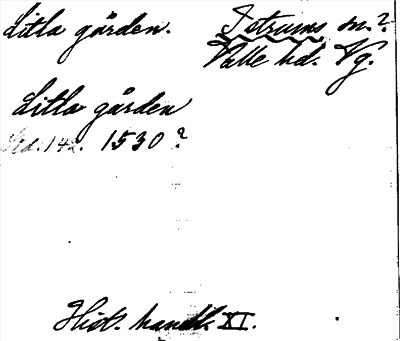 Litla gården. Istrums sn.?
Valle hd. Vg.
Litla gården
sid. 142. 1530?
Hist. handl. XI.